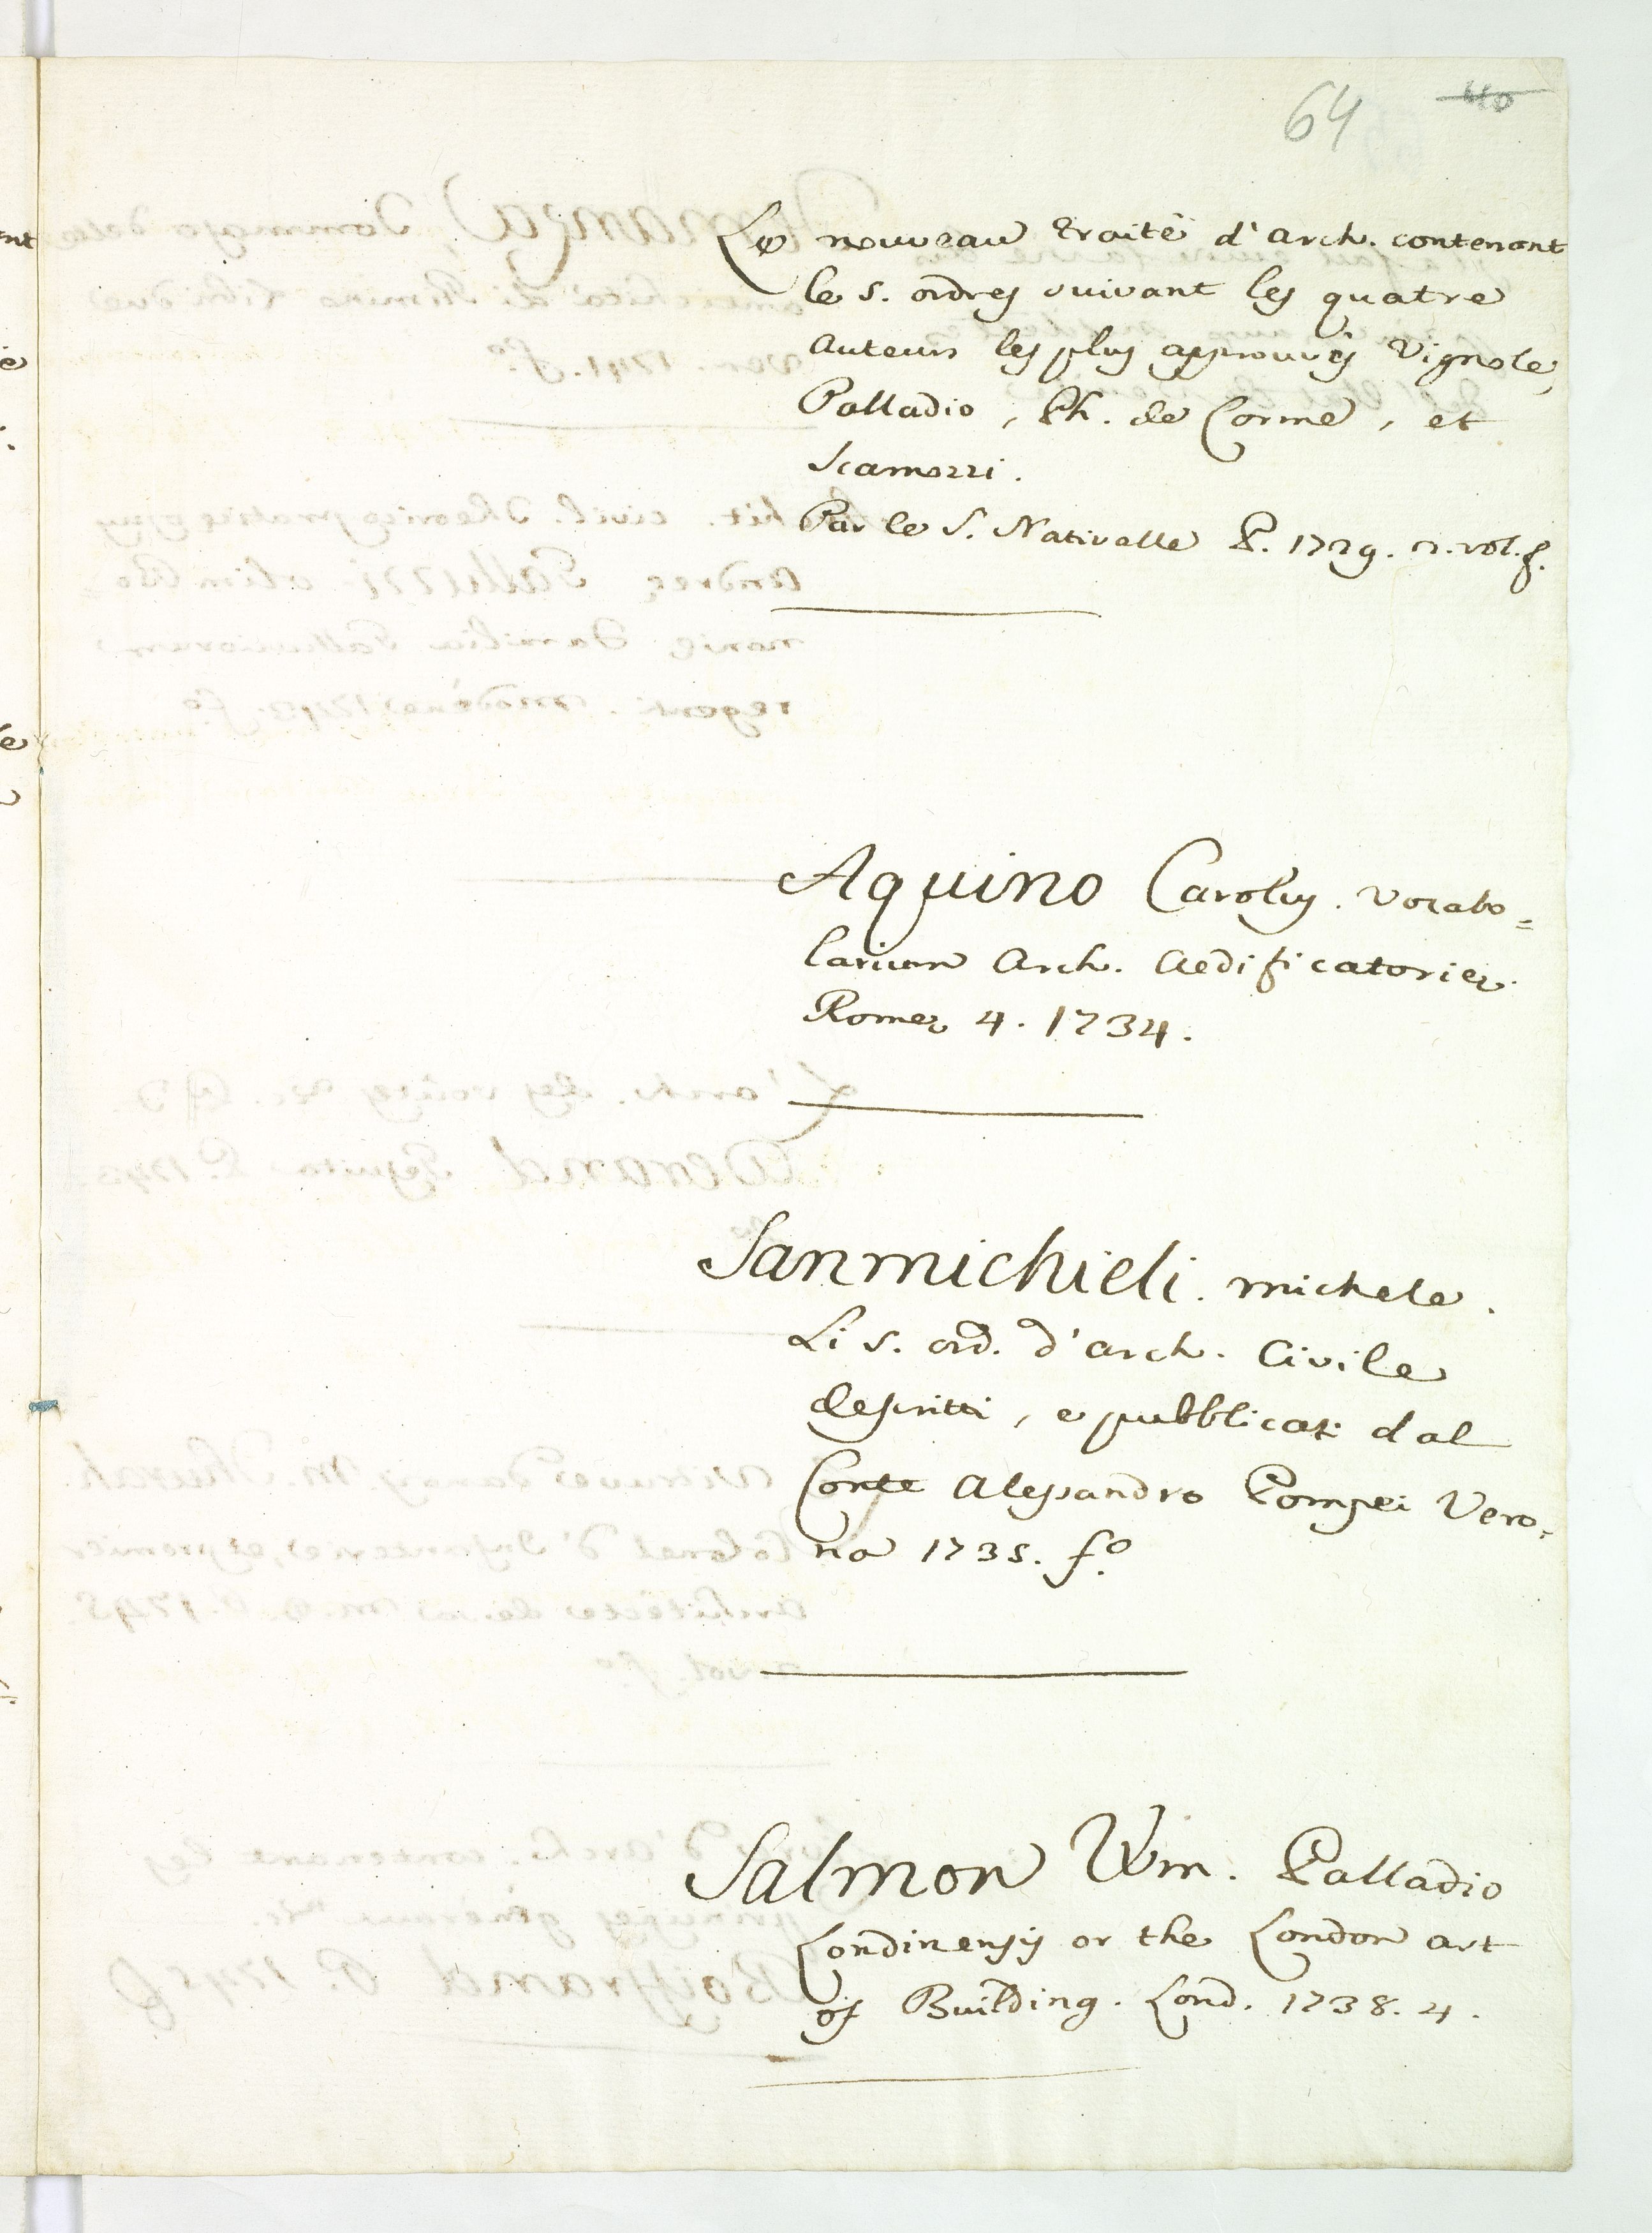 64 40
Le nouveau traité d'arch. contenant
le 5. ordres suivant les quatre
auteurs les plus approuvés Vignole,
Palladio, Ph. de Lorme, et
Scamozzi.
Par le S. Nativelle P. 1729. 2. vol. f.
Aquino Carolus. Vocabo=
larium Arch. Aedificatoriae.
Romae 4. 1734.
Sanmichieli. michele.
Li 5. ord. d'arch. Civile
descritti, e pubblicati dal
Conte Alessandro Pompei Vero=
na 1735. f.o
Salmon Wm. Palladio
Londinensis or the London art
of Building. Lond. 1738. 4.